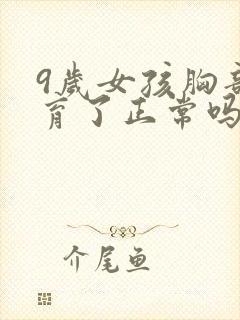 9歲女孩胸部
育了正常吗
介尾鱼